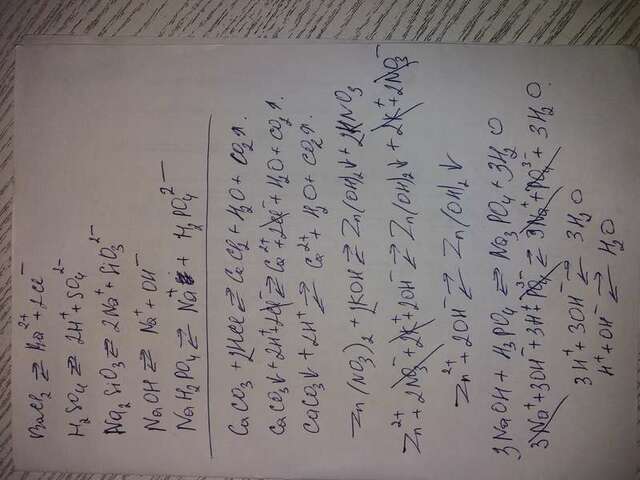 BaCl₂ ⇄ Ba²⁺ + 2Cl⁻
H₂SO₄ ⇄ 2H⁺ + SO₄²⁻
Na₂SiO₃ ⇄ 2Na⁺ + SiO₃²⁻
NaOH ⇄ Na⁺ + OH⁻
NaH₂PO₄ ⇄ Na⁺ + H₂PO₄²⁻
CaCO₃ + 2HCl ⇄ CaCl₂ + H₂O + CO₂↑.
CaCO₃↓ + 2H⁺ + 2Cl⁻ ⇄ Ca²⁺ + 2Cl⁻ + H₂O + CO₂↑.
CaCO₃↓ + 2H⁺ ⇄ Ca²⁺ + H₂O + CO₂↑.
Zn(NO₃)₂ + 2KOH ⇄ Zn(OH)₂↓ + 2KNO₃
Zn²⁺ + 2NO₃⁻ + 2K⁺ + 2OH⁻ ⇄ Zn(OH)₂↓ + 2K⁺ + 2NO₃⁻
Zn²⁺ + 2OH⁻ ⇄ Zn(OH)₂↓
3NaOH + H₃PO₄ ⇄ Na₃PO₄ + 3H₂O
3Na⁺ + 3OH⁻ + 3H⁺ + PO₄³⁻ ⇄ 3Na⁺ + PO₄³⁻ + 3H₂O.
3H⁺ + 3OH⁻ ⇄ 3H₂O
H⁺ + OH⁻ ⇄ H₂O